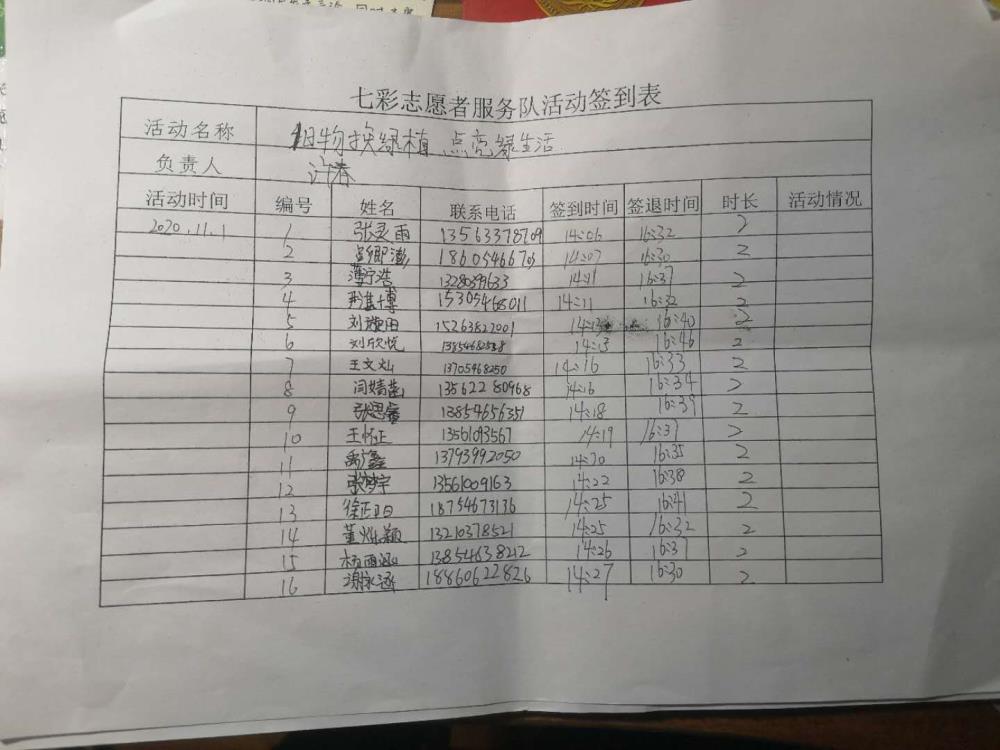 七彩志愿者服务队活动签到表
活动名称 旧物换绿植 点亮绿生活
负责人 许春
活动时间 编号 姓名 联系电话 签到时间 签退时间 时长 活动情况
2020.11.1 1 张灵雨 13563378709 14:06 16:32 2
2 18605466703 14:07 16:30 2
3 薄宇浩 13280399633 14:11 16:37 2
4 15305468011 14:11 16:32 2
5 15263822001 14:13 16:40 2
6 刘欣悦 13854682538 14:13 16:46 2
7 王文灿 13705468250 14:16 16:33 2
8 闫婧菡 13562280968 14:16 16:34 2
9 13854656351 14:18 16:39 2
10 王怀正 13561093567 14:19 16:37 2
11 禹鑫 13793992050 14:20 16:35 2
12 张梦宇 13561009163 14:22 16:38 2
13 徐正阳 18754673136 14:25 16:41 2
14 13210378521 14:25 16:32 2
15 杨雨涵 13854638212 14:26 16:37 2
16 谢沐涵 18860622826 14:27 16:30 2